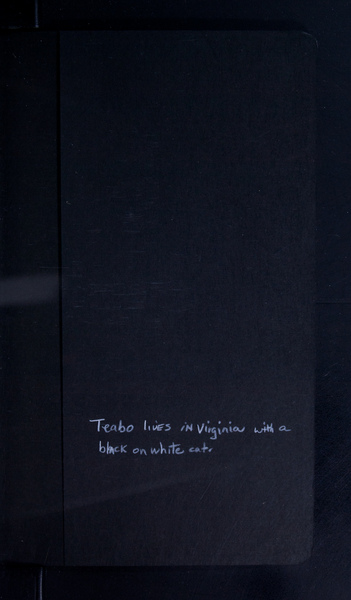 Teabo lives in Virginia with a
black on white cat.